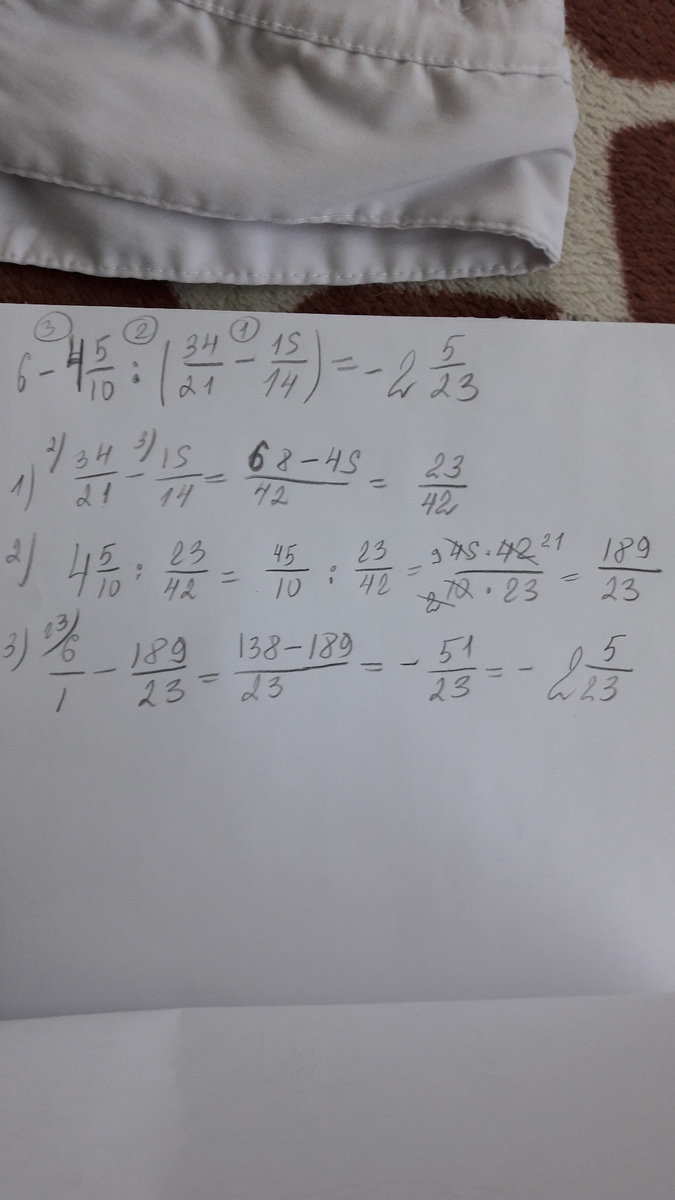 6 - 4 5/10 : (34/21 - 15/14) = - 2 5/23
1) 34/21 - 15/14 = 68-45/42 = 23/42
2) 4 5/10 : 23/42 = 45/10 : 23/42 = 45·42/10·23 = 189/23
3) 6/1 - 189/23 = 138-189/23 = - 51/23 = - 2 5/23